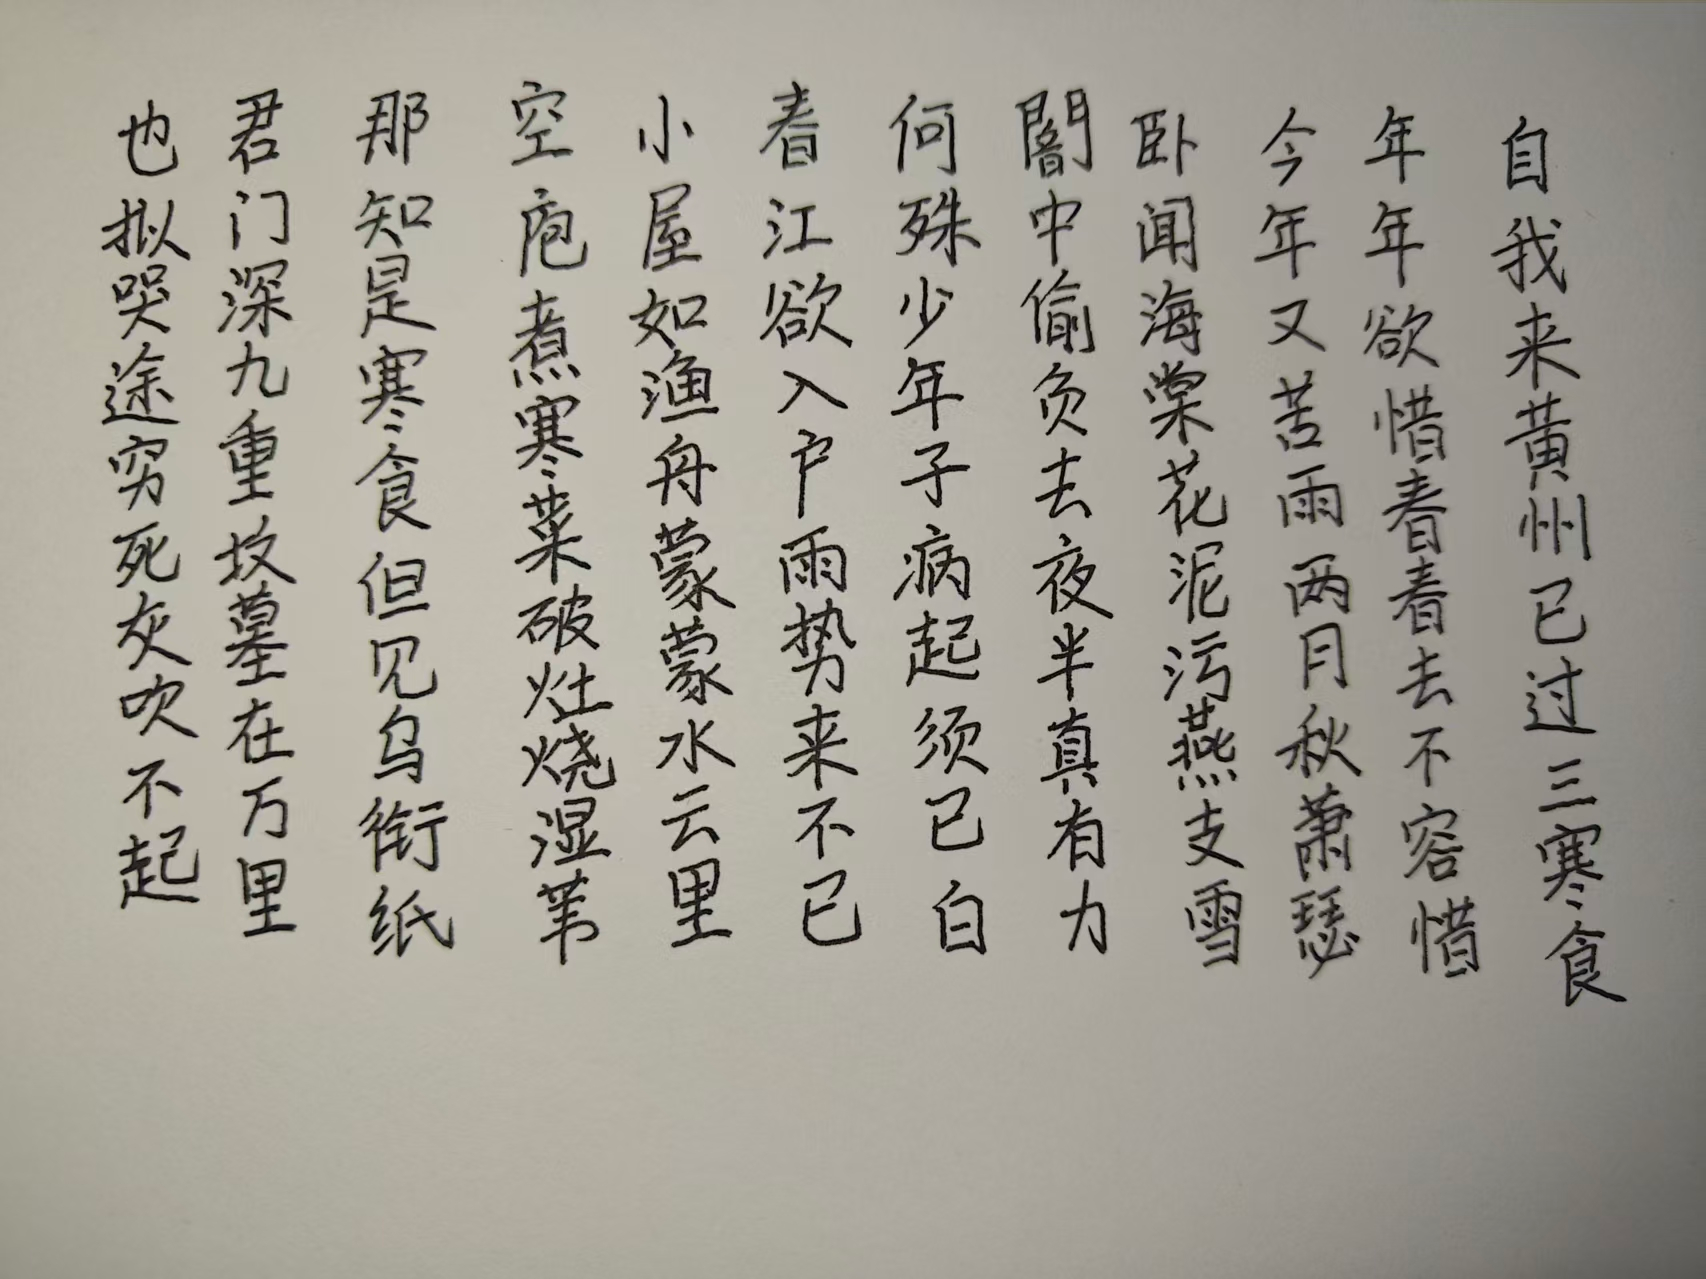 自我来黄州已过三寒食
年年欲惜春春去不容惜
今年又苦雨两月秋萧瑟
卧闻海棠花泥污燕支雪
闇中偷负去夜半真有力
何殊少年子病起须已白
春江欲入户雨势来不已
小屋如渔舟蒙蒙水云里
空庖煮寒菜破灶烧湿苇
那知是寒食但见乌衔纸
君门深九重坟墓在万里
也拟哭途穷死灰吹不起